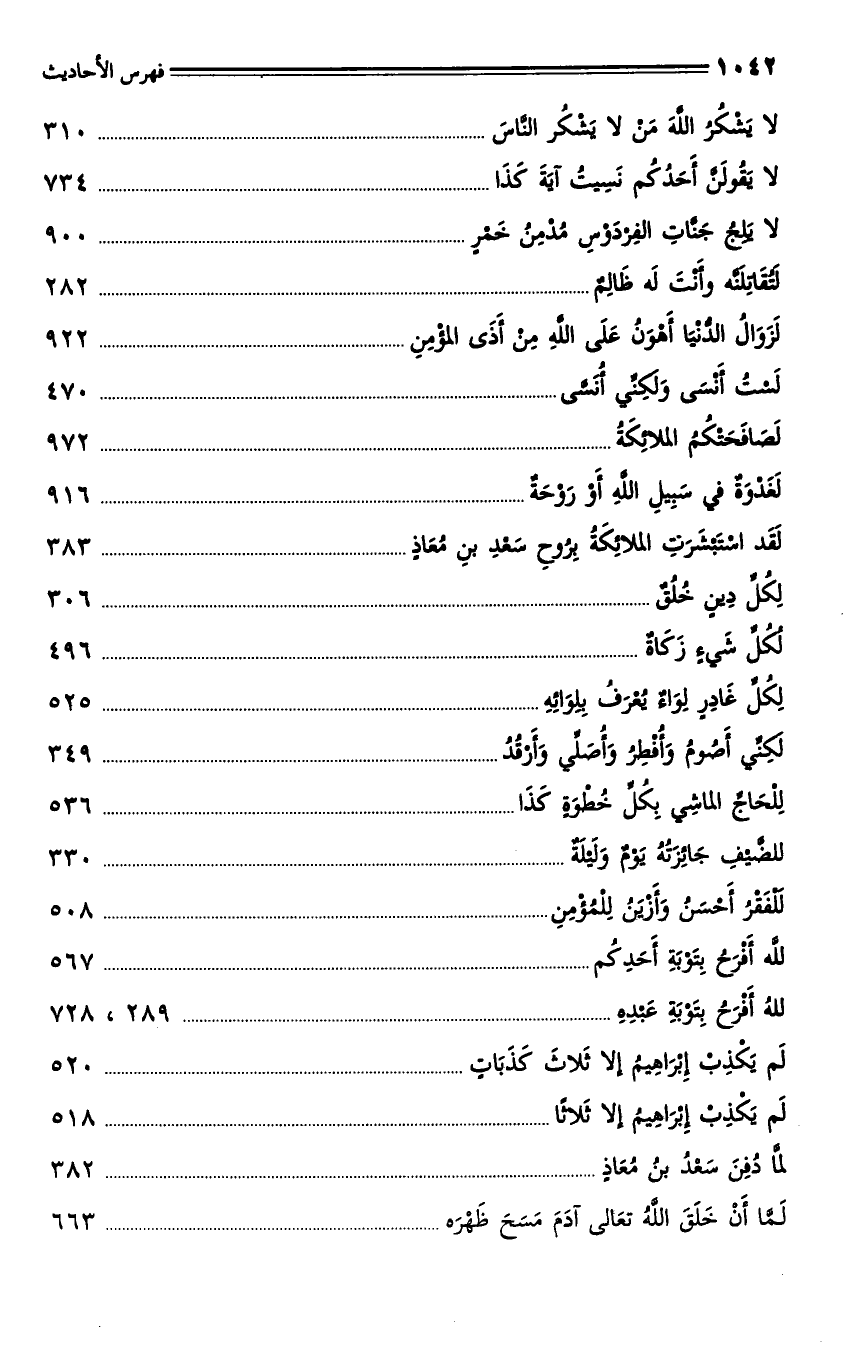 ١٠٤٢ فهرس الأحاديث
لا يَشْكُرُ اللَّهَ مَنْ لا يَشْكُر النَّاسَ ........ ٣١٠
لا يَقُولَنَّ أَحَدُكُم نَسِيتُ آيَةَ كَذَا ........ ٧٣٤
لا يَلِجُ جَنَّاتِ الفِرْدَوْسِ مُدْمِنُ خَمْرٍ ........ ٩٠٠
لَتُقَاتِلَنَّه وأَنْتَ لَه ظَالِمٌ ........ ٢٨٢
لَزَوَالُ الدُّنْيَا أَهْوَنُ عَلَى اللَّهِ مِنْ أَذَى المؤْمِنِ ........ ٩٢٢
لَسْتُ أَنْسَى وَلَكِنِّي أُنَسَّى ........ ٤٧٠
لَصَافَحَتْكُمُ الملائِكَةُ ........ ٩٧٢
لَغَدْوَةٌ في سَبِيلِ اللَّهِ أَوْ رَوْحَةٌ ........ ٩١٦
لَقَد اسْتَبْشَرَتِ الملائِكَةُ بِرُوحِ سَعْدِ بنِ مُعَاذٍ ........ ٣٨٣
لِكُلِّ دِينٍ خُلُقٌ ........ ٣٠٦
لُكُلِّ شَيءٍ زَكَاةٌ ........ ٤٩٦
لِكُلِّ غَادِرٍ لِوَاءٌ يُعْرَفُ بِلِوَائِهِ ........ ٥٢٥
لَكِنِّي أَصُومُ وَأُفْطِرُ وَأُصَلِّي وَأَرْقُدُ ........ ٣٤٩
لِلْحَاجِّ الماشِي بِكُلِّ خُطْوَةٍ كَذَا ........ ٥٣٦
للضَّيْفِ جَائِزَتُهُ يَوْمٌ وَلَيلَةٌ ........ ٣٣٠
لَلْفَقْرُ أَحْسَنُ وَأَزْيَنُ لِلْمُؤْمِنِ ........ ٥٠٨
للَّه أَفْرَحُ بِتَوْبَةِ أَحَدِكُم ........ ٥٦٧
للهُ أَفْرَحُ بِتَوْبَةِ عَبْدِهِ ........ ٢٨٩ ، ٧٢٨
لَم يَكْذِبْ إِبْرَاهِيمُ إلا ثَلاثَ كَذَبَاتٍ ........ ٥٢٠
لَم يَكْذِبْ إِبْرَاهِيمُ إلا ثَلاثًا ........ ٥١٨
لمَّا دُفِنَ سَعْدُ بنُ مُعَاذٍ ........ ٣٨٢
لَمَّا أَنْ خَلَقَ اللَّهُ تعَالى آدَمَ مَسَحَ ظَهْرَه ........ ٦٦٣